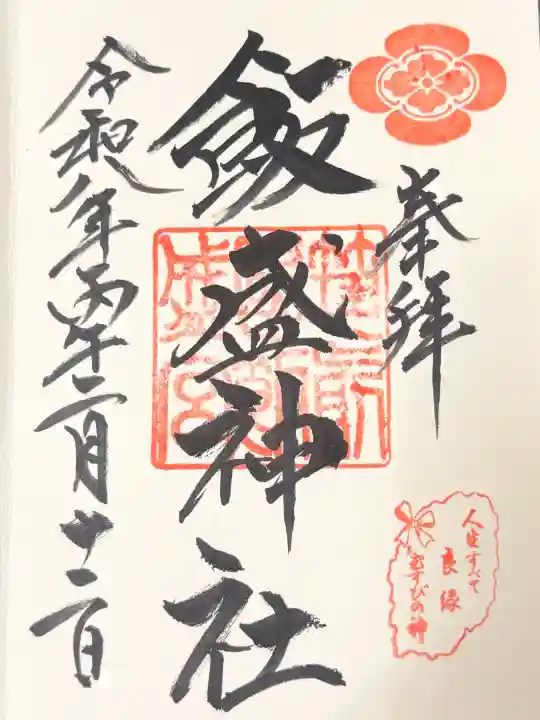 奉拝
人生すべて
良縁
むすびの神
飯盛神社
令和八年丙午二月十二日